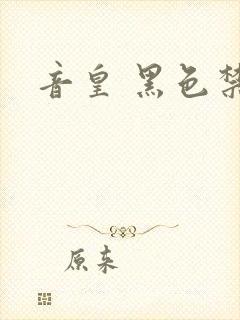 音皇 黑色禁
原来